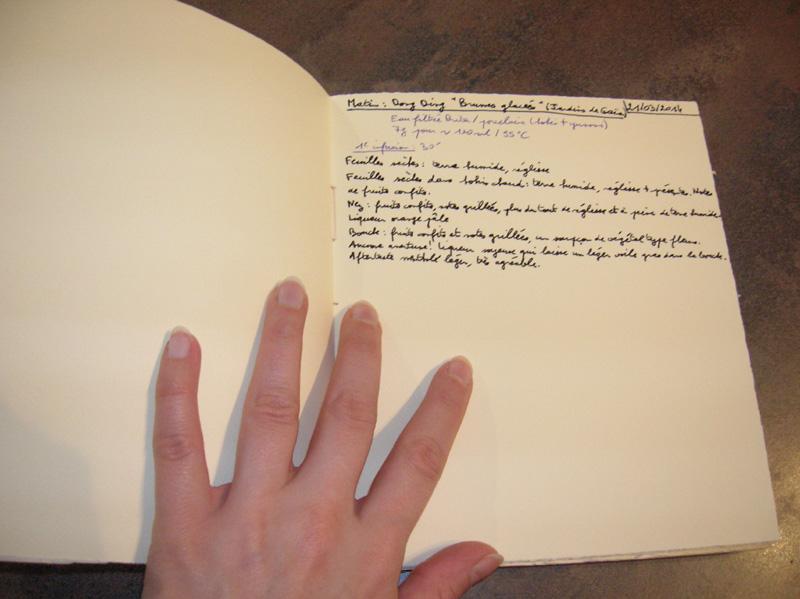 Matin : Dong Ding "Brumes glacées" (Jardins de Gaïa) 21/03/2014
Eau filtrée Brita / porcelaine (hohin + gaiwan)
7g pour ~ 120 ml / 95°C
1e infusion : 30"
Feuilles sèches : terre humide, réglisse
Feuilles sèches dans hohin chaud : terre humide, réglisse + Notes
de fruits confits.
Nez : fruits confits, notes grillées, plus du tout de réglisse et à peine de terre humide.
Liqueur orange pâle
Bouche : fruits confits et notes grillées, un soupçon de végétal type fleurs.
Aucune amertume ! Liqueur soyeuse qui laisse un léger voile gras dans la bouche.
Aftertaste léger, très agréable.